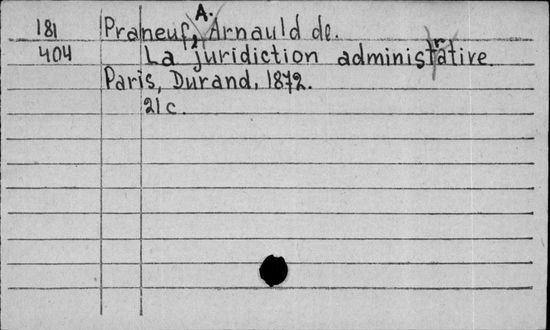 A.
181 Praneuf, Arnauld de.
404 La juridiction administrative.
Paris, Durand, 1872.
21 c.